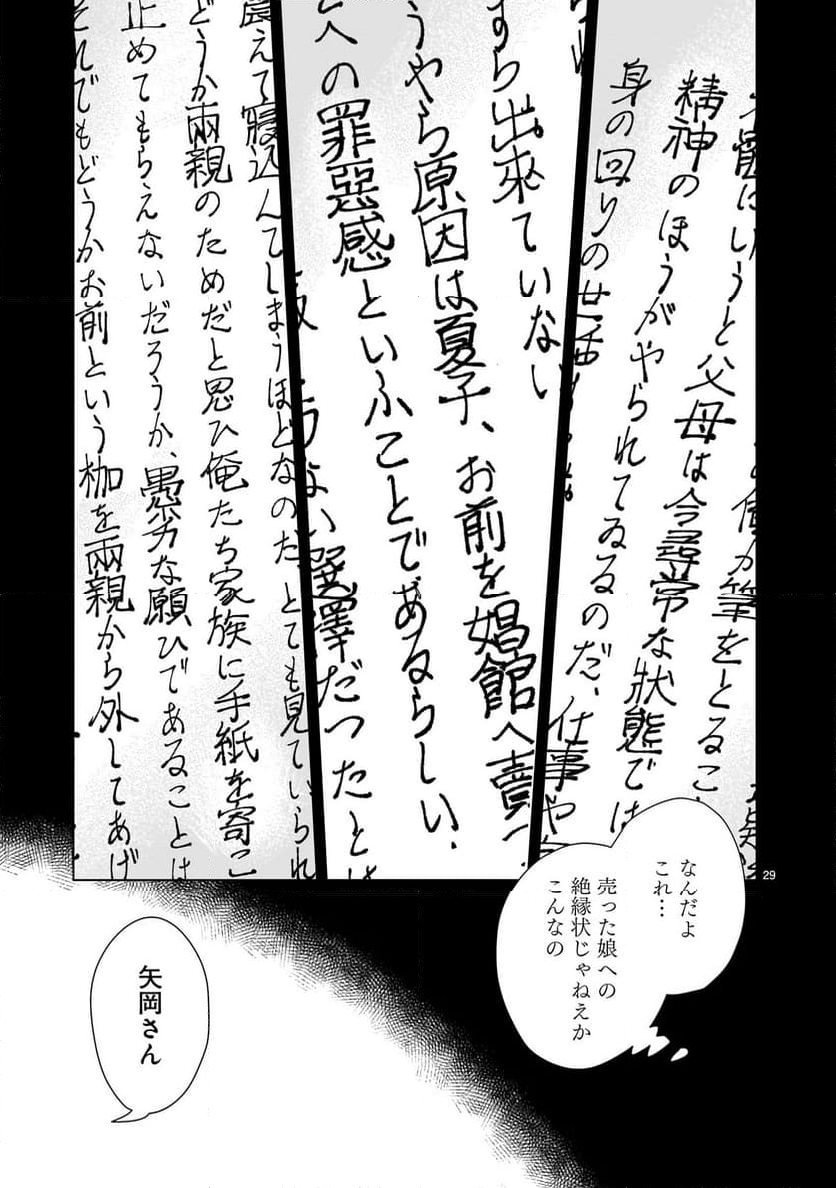 精神のほうがやられてゐるのだ、仕事や
というと父母は今尋常な状態では
身の回りの世話
筆をとるこ
すら出來ていない
うやら原因は夏子、お前を娼館へ賣
への罪惡感といふことであるらしい、
ない選擇だったとは
震えて寝込んでしまうほどなのだ、とても見ていられ
どうか兩親のためだと思ひ俺たち家族に手紙を寄こ
止めてもらえないだろうか、愚劣な願ひであることは
それでもどうかお前という枷を兩親から外してあげ
29
なんだよ
これ…
売った娘への
絶縁状じゃねえか
こんなの
矢岡さん